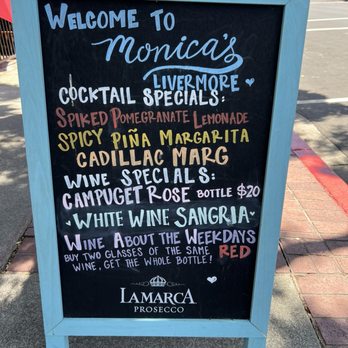 WELCOME TO
Monica's
LIVERMORE
COCKTAIL SPECIALS:
SPIKED POMEGRANATE LEMONADE
SPICY PIÑA MARGARITA
CADILLAC MARG
WINE SPECIALS:
CAMPUGET ROSE BOTTLE $20
WHITE WINE SANGRIA
WINE ABOUT THE WEEKDAYS
BUY TWO GLASSES OF THE SAME RED
WINE, GET THE WHOLE BOTTLE!
LAMARCA
PROSECCO